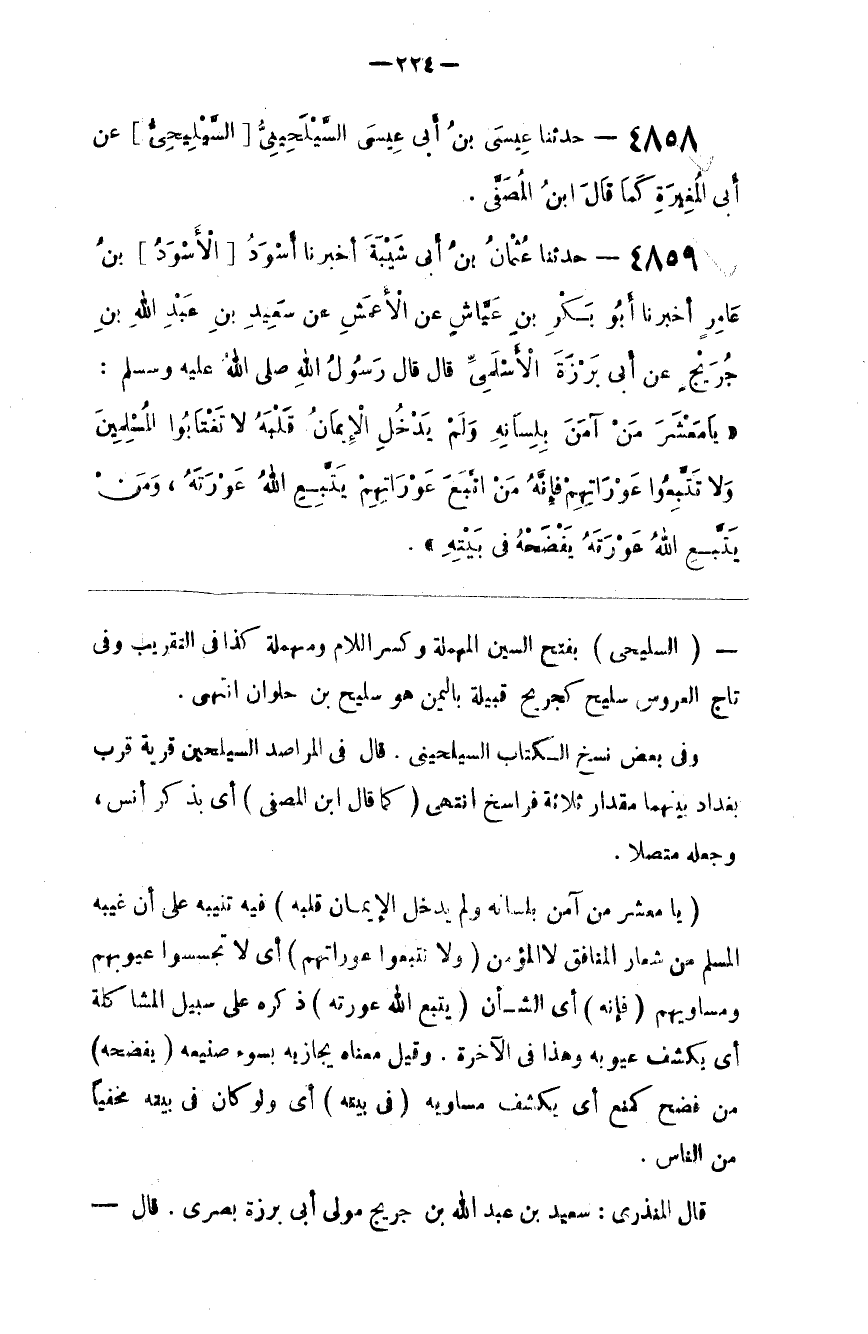 —٢٢٤—
٤٨٥٨ — حدثنا عِيسَى بنُ أَبى عِيسَى السَّيْلَحِينِىُّ [ السَّهْلِيحِىُّ ] عن
أَبى الْمُغِيرَةِ كَمَا قَالَ ابنُ الْمُصَفَّى .
٤٨٥٩ — حدثنا عُثْمَانُ بنُ أَبى شَيْبَةَ أخبرنا أَسْوَدُ [ الْأَسْوَدُ ] بنُ
عَامِرٍ أخبرنا أَبُو بَكْرِ بنِ عَيَّاشٍ عن الْأَعْمَشِ عن سَعِيدِ بنِ عَبْدِ اللهِ بنِ
جُرَيْجٍ عن أَبى بَرْزَةَ الْأَسْلَمِىِّ قال قال رَسُولُ اللهِ صلى اللهُ عليه وسلم :
« يَامَعْشَرَ مَنْ آمَنَ بِلِسَانِهِ وَلَمْ يَدْخُلِ الْإِيمَانُ قَلْبَهُ لا تَغْتَابُوا الْمُسْلِمِينَ
وَلا تَتَّبِعُوا عَوْرَاتِهِمْ فَإِنَّهُ مَنْ اتَّبَعَ عَوْرَاتِهِمْ يَتَّبِعِ اللهُ عَوْرَتَهُ ، وَمَنْ
يَتَّبِعِ اللهُ عَوْرَتَهُ يَفْضَحْهُ فى بَيْتِهِ » .
— ( السليحى ) بفتح السين المهملة وكسر اللام ومهملة كذا فى التقريب وفى
تاج العروس سليح كجريح قبيلة باليمن هو سليح بن حلوان انتهى .
وفى بعض نسخ الكتاب السيلحينى . قال فى المراصد السيلحين قرية قرب
بغداد بينهما مقدار ثلاثة فراسخ انتهى ( كما قال ابن المصفى ) أى بذكر أنس ،
وجعله متصلا .
( يا معشر من آمن بلسانه ولم يدخل الإيمان قلبه ) فيه تنبيه على أن غيبه
المسلم من شعار المنافق لا المؤمن ( ولا تتبعوا عوراتهم ) أى لا تجسسوا عيوبهم
ومساويهم ( فإنه ) أى الشأن ( يتبع الله عورته ) ذكره على سبيل المشاكلة
أى يكشف عيوبه وهذا فى الآخرة . وقيل معناه يجازيه بسوء صنيعه ( يفضحه)
من فضح كمنع أى يكشف مساويه ( فى بيته ) أى ولو كان فى بيته مخفياً
من الناس .
قال المنذرى : سعيد بن عبد الله بن جريج مولى أبى برزة بصرى . قال —